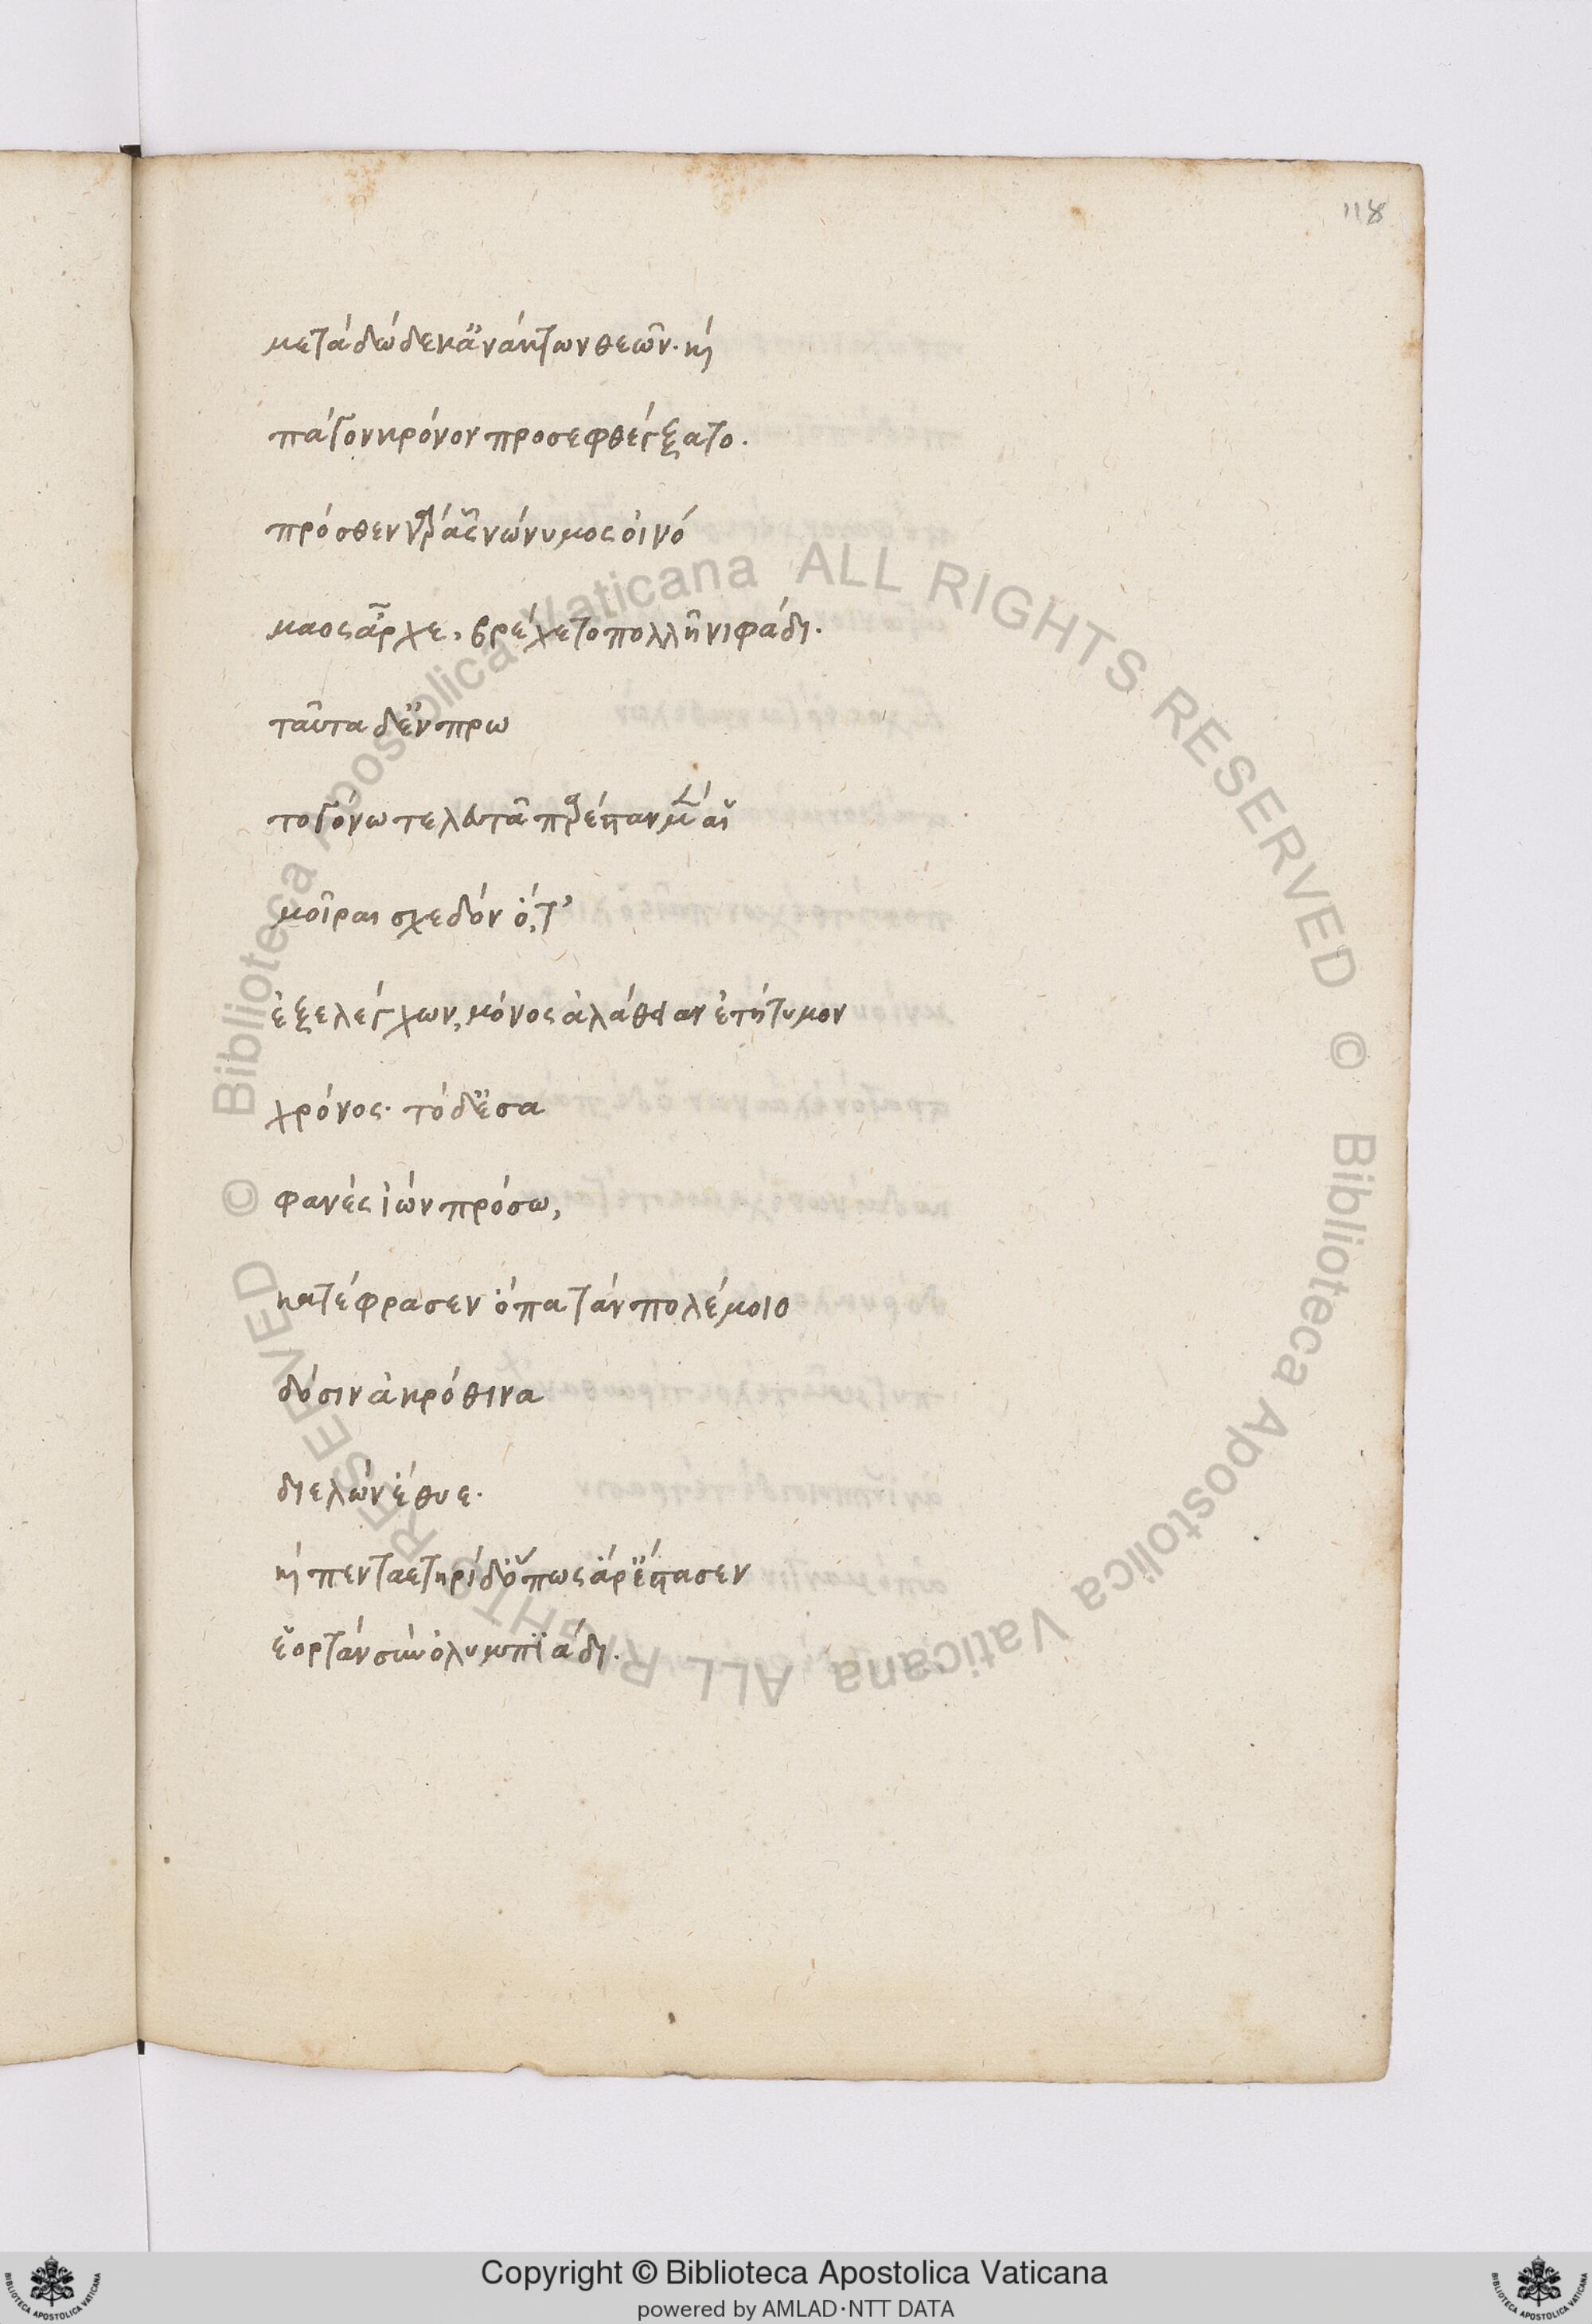 118
μετὰ δώδεκ' ἀνάκτων θεῶν. κὶ
πάγον κρόνου προσεφθέγξατο.
πρόσθεν γὰρ ἇς νώνυμος οἰνό
μαος ἆρχε, βρέχετο πολλῆ νιφάδι.
ταῦτα δ' ἐν πρω
τογόνω τελετᾶ παρέσταν μὲν αἱ
μοῖραι σχεδόν ὅ,τ'
ἐξελέγχων, μόνος ἀλάθειαν ἐτήτυμον
χρόνος. τὸ δὲ σα
φανὲς ἰὼν πρόσω,
κατέφρασεν ὅπα τὰν πολέμοιο
δόσιν ἀκρόθινα
διελὼν ἔθυε.
κὶ πενταετηρίδ' ὅπως ἄρ' ἔστασεν
ἑορτὰν σὺν ὀλυμπϊάδι.
© Biblioteca Apostolica Vaticana ALL RIGHTS RESERVED © Biblioteca Apostolica Vaticana ALL RIGHTS RESERVED
Copyright © Biblioteca Apostolica Vaticana
powered by AMLAD·NTT DATA
BIBLIOTECA APOSTOLICA VATICANA
BIBLIOTECA APOSTOLICA VATICANA